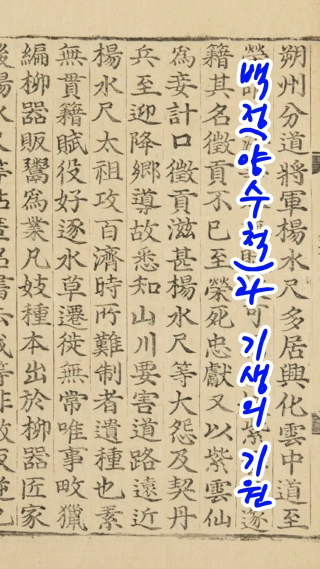 백정(양수척)과 기생의 기원
朔州分道將軍楊水尺多居興化雲中道至
榮 可 紫 遂
籍其名徵貢不已至榮死忠獻又以紫雲仙
爲妾計口徵貢滋甚楊水尺等大怨及契丹
兵至迎降鄕導故悉知山川要害道路遠近
楊水尺太祖攻百濟時所難制者遺種也素
無貫籍賦役好逐水草遷徙無常唯事畋獵
編柳器販鬻爲業凡妓種本出於柳器匠家
後楊水尺等帖匿名書云我等非故反逆也